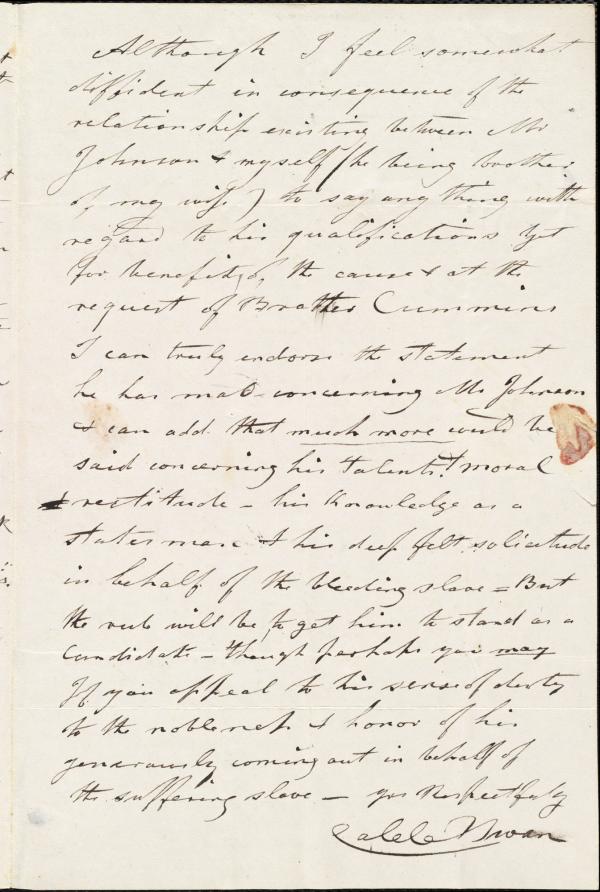 Although I feel somewhat
diffident in consequence of the
relationship existing between Mr
Johnson & myself (he being brother
of my wife) to say any thing with
regard to his qualifications yet
for benefit of the cause & at the
request of Brother Cummins
I can truly endorse the statement
he has made concerning Mr Johnson
& can add that much more could be
said concerning his talents & moral
rectitude - his knowledge as a
statesman & his deep felt solicitude
in behalf of the bleeding slave = But
the rub will be to get him to stand as a
Candidate - though perhaps you may
If you appeal to his sense of duty
to the nobleness & honor of his
generously coming out in behalf of
the suffering slave - yrs Respectfuly
Caleb Swan